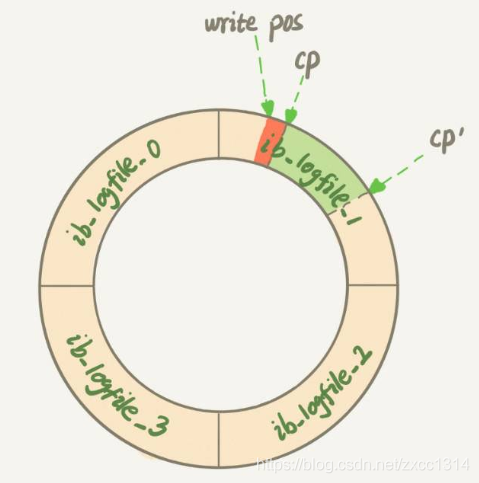 write pos
cp
cp'
ib_logfile_0
ib_logfile_1
ib_logfile_3
ib_logfile_2
https://blog.csdn.net/zxcc1314